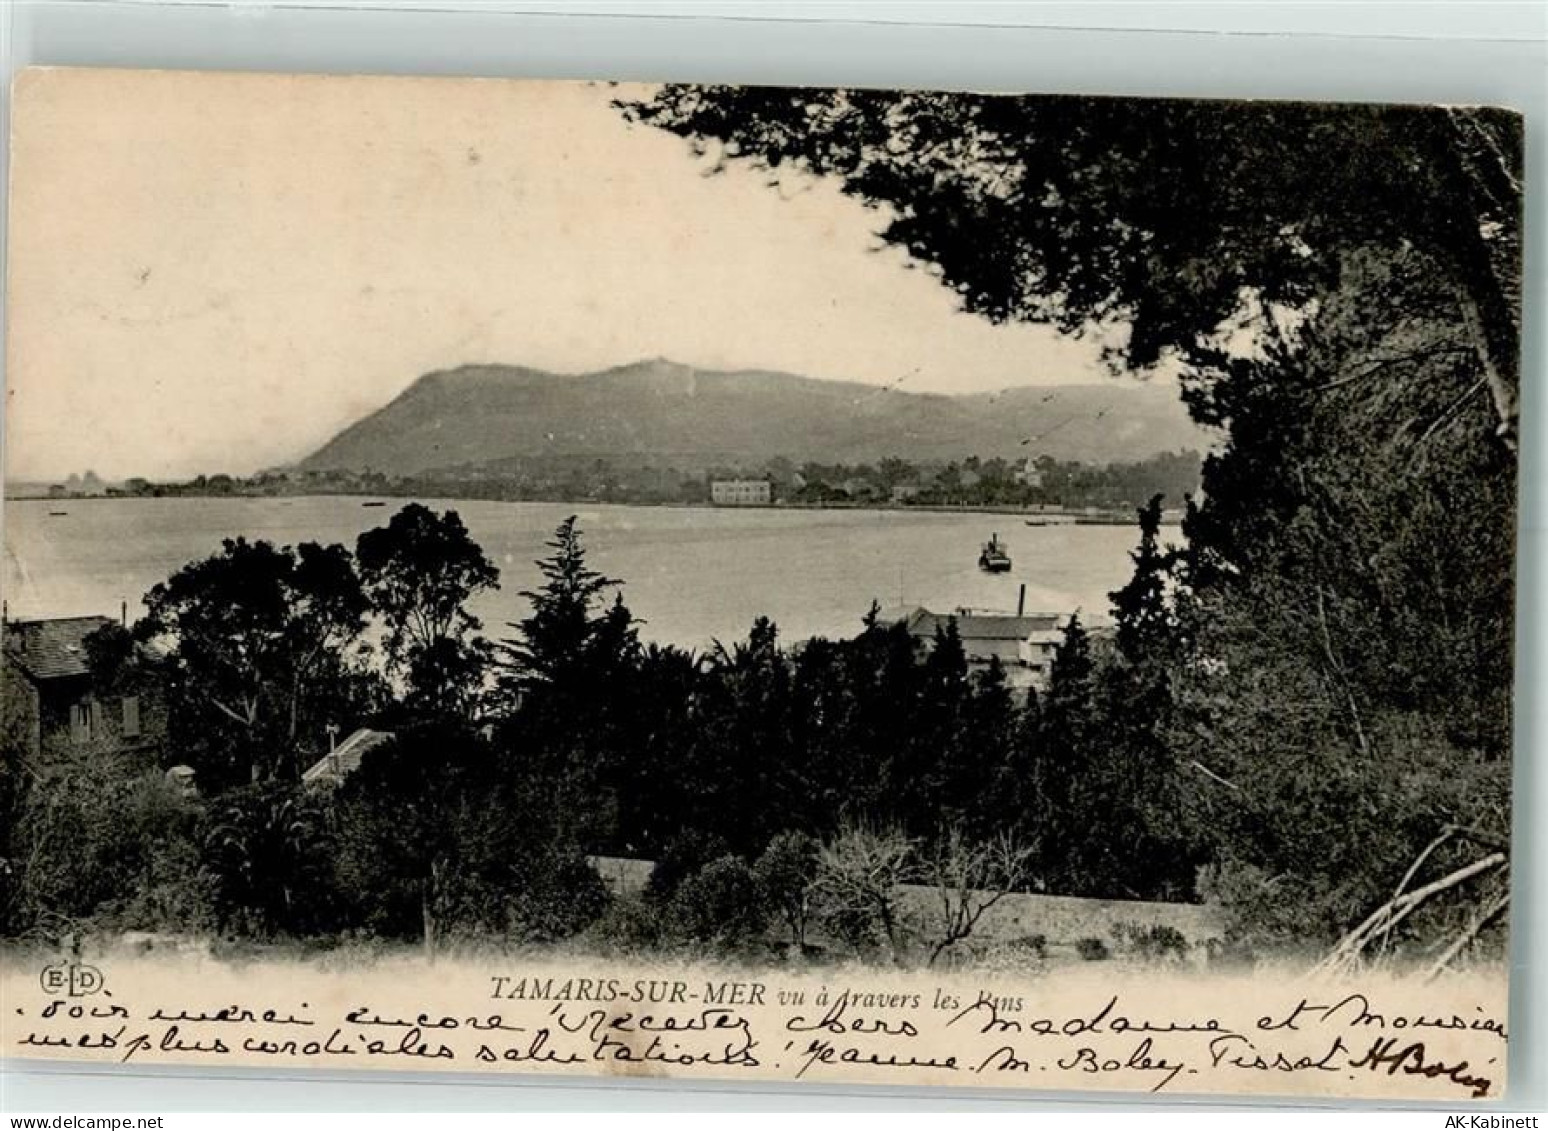 ELD
TAMARIS-SUR-MER vu à travers les Pins
voir merci encore! Recevez chers Madame et Monsieur
mes plus cordiales salutations! Jeanne. M. Boley-Tissot. H Boley
AK-Kabinett